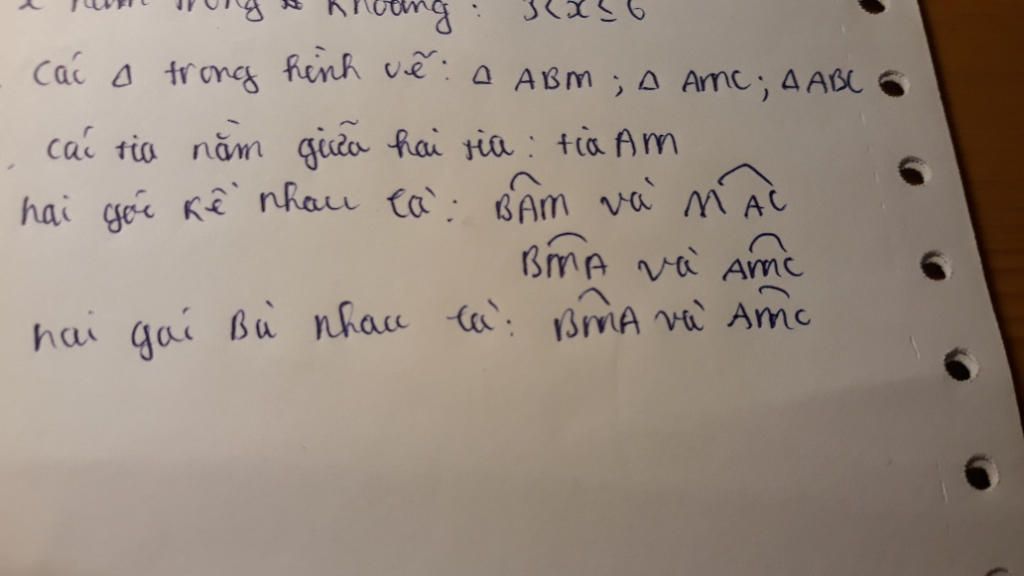 x nằm trong khoảng: 3<x≤6
Các Δ trong hình vẽ: Δ ABM; Δ AMC; ΔABC
các tia nằm giữa hai tia: tia AM
hai góc kề nhau là: BAM và MAC
BMA và AMC
hai gai Bù nhau là: BMA và AMC